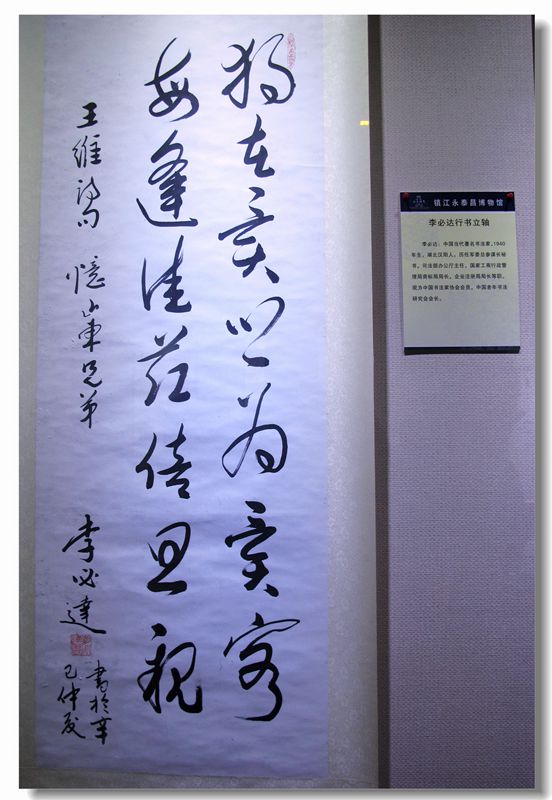 独在異乡为異客
每逢佳节倍思親
王維詩句 憶山東兄弟
李必達
書於辛
巳仲夏
镇江永泰昌博物馆
李必达行书立轴
李必达：中国当代著名书法家，1940
年生，湖北汉阳人，历任军委总参谋长秘
书，司法部办公厅主任，国家工商行政管
理局商标局局长、企业注册局局长等职，
现为中国书法家协会会员，中国老年书法
研究会会长。